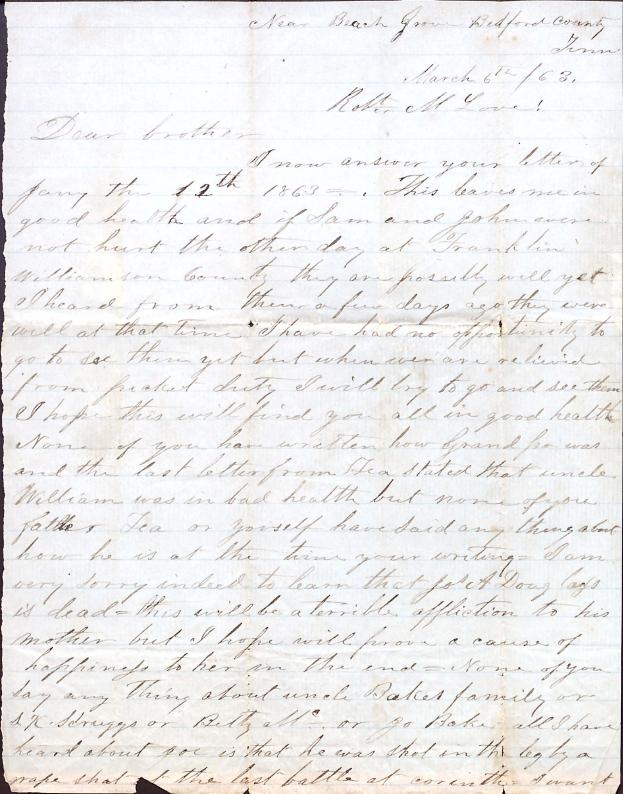 Near Beach Grove Bedford County
Tenn
March 6th /63.
Robt M Love!
Dear brother
I now answer your letter of
Jany the 12th 1863 = . This leaves me in
good health and if Sam and John were
not hurt the other day at Franklin
Williamson County they are possibly well yet
I heard from them a few days ago they were
well at that time I have had no opportunity to
go to see them yet but when ever are relieved
from picket duty I will try to go and see them
I hope this will find you all in good health
None of you have written how Grand Pa was
and the last letter from Tea stated that uncle
William was in bad health but none of you
father Tea or yourself have said any thing about
how he is at the time your writing = I am
very sorry indeed to learn that Jo A Douglass
is dead = this will be a terrible affliction to his
mother but I hope will prove a cause of
happiness to her in the end = None of you
say any thing about uncle Bakes family or
Scruggs or Betty Mc or Jo Bake all I have
heard about Joe is that he was shot in the leg by a
grape shot at the last battle at corinth = I want